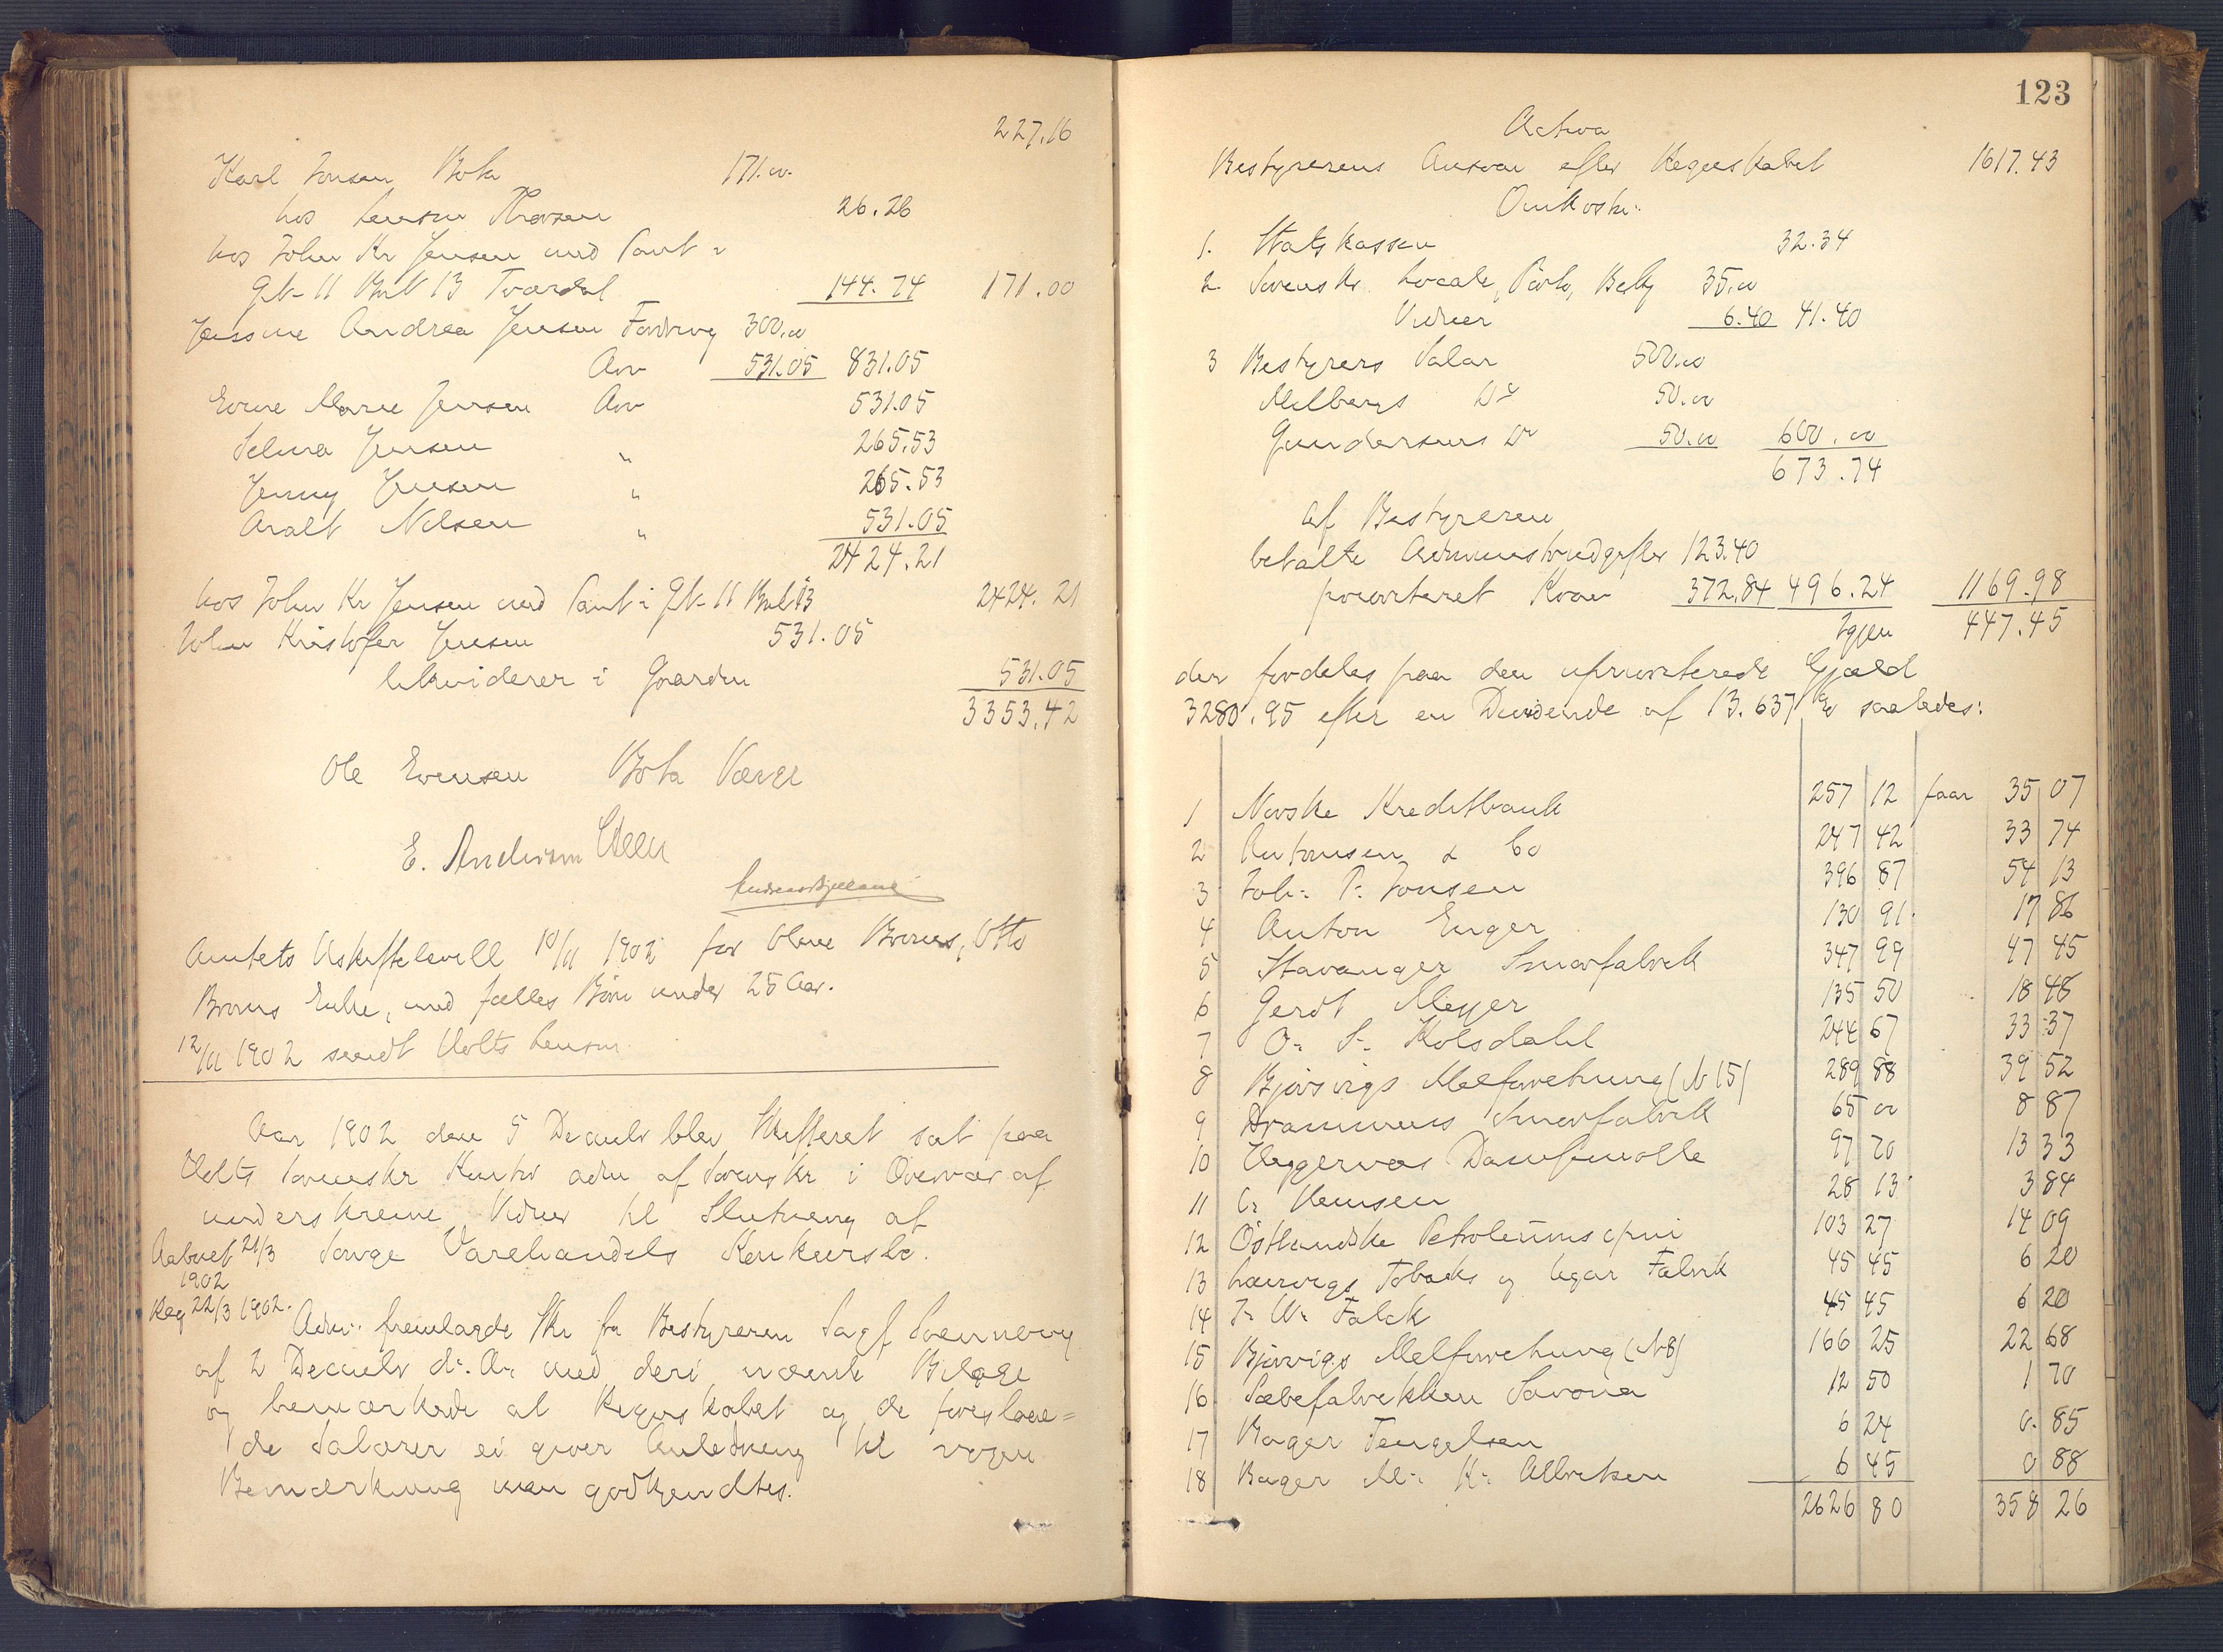 227.16
Karl Jonsen Bota 171.00
hos Lensm Thorsen 26.26
hos John Kr Jensen med Pant i
Gb 11 Bnb 13 Tværdal 144.74 171.00
Jensine Andrea Jensen Fordring 300.00
Arv 531.05 831.05
Evine Marie Jensen Arv 531.05
Selma Jensen " 265.53
Jenny Jensen " 265.53
Aralt Nilsen " 531.05
2424.21
hos John Kr Jensen med Pant i Gb 11 Bnb 13 2424.21
John Kristofer Jensen 531.05
likviderer i Gaarden 531.05
3353.42
Ole Evensen Bota Værge
E. Andersen
Amtets Uskiftebevill 10/11 1902 for Oline Bronns, Otto
Bronns Enke, med fælles Børn under 25 Aar.
12/11 1902 sendt Holts Lensm
Aar 1902 den 5 Decmbr blev Skifteret sat paa
Holts Sorenskr Kontor adm af Sorenskr i Overvær af
underskrevne Vidner til Slutning af
Aabnet 21/3 Songe Varehandels Konkursbo.
1902
Reg 22/3 1902.
Adm. fremlagde Skr fra Bestyreren Sagf
af 2 Decmbr d. A. med deri nævnte Bilage
og bemærkede at Regnskabet og de foreslaae=
de Salærer ei giver Anledning til nogen
Bemærkning men godkjendtes.
123
Activa
Bestyrerens Ansvar efter Regnskabet 1617.43
Omkostn:
1. Statskassen 32.34
2 Sorenskr. Locale, Porto, Belg 35.00
Vidner 6.40 41.40
3 Bestyrers Salær 500.00
Melbergs Do 50.00
Gundersens Do 50.00 600.00
673.74
Af Bestyreren
betalte Administrudgifter 123.40
prioriteret Krav 372.84 496.24 1169.98
Igjen 447.45
der fordeles paa den uprioriterede Gjæld
3280.95 efter en Dividende af 13.637 % saaledes:
1 Norske Kreditbank 257 12 faar 35 07
2 Antonsen & Co 247 42 33 74
3 Joh. P. Jonsen 396 87 54 13
4 Anton Enger 130 91 17 86
5 Stavanger Smørfabrik 347 99 47 45
6 Gerdt Meyer 135 50 18 48
7 O. S. Kolsdahl 244 67 33 37
8 Bjørsvigs Melforretning (N 15) 289 88 39 52
9 Drammens Smørfabrik 65 00 8 87
10 Dampmølle 97 70 13 33
11 C. Hansen 28 13 3 84
12 Østlandske Petroleumscpni 103 27 14 09
13 Laurvigs Tobaks og Cigar Fabrik 45 45 6 20
14 J. W. Falck 45 45 6 20
15 Bjørsvigs Melforretning (N 8) 166 25 22 68
16 Sæbefabrikken Savona 12 50 1 70
17 Bager Tengelsen 6 24 0. 85
18 Bager M. K. Albretsen 6 45 0 88
2626 80 358 26